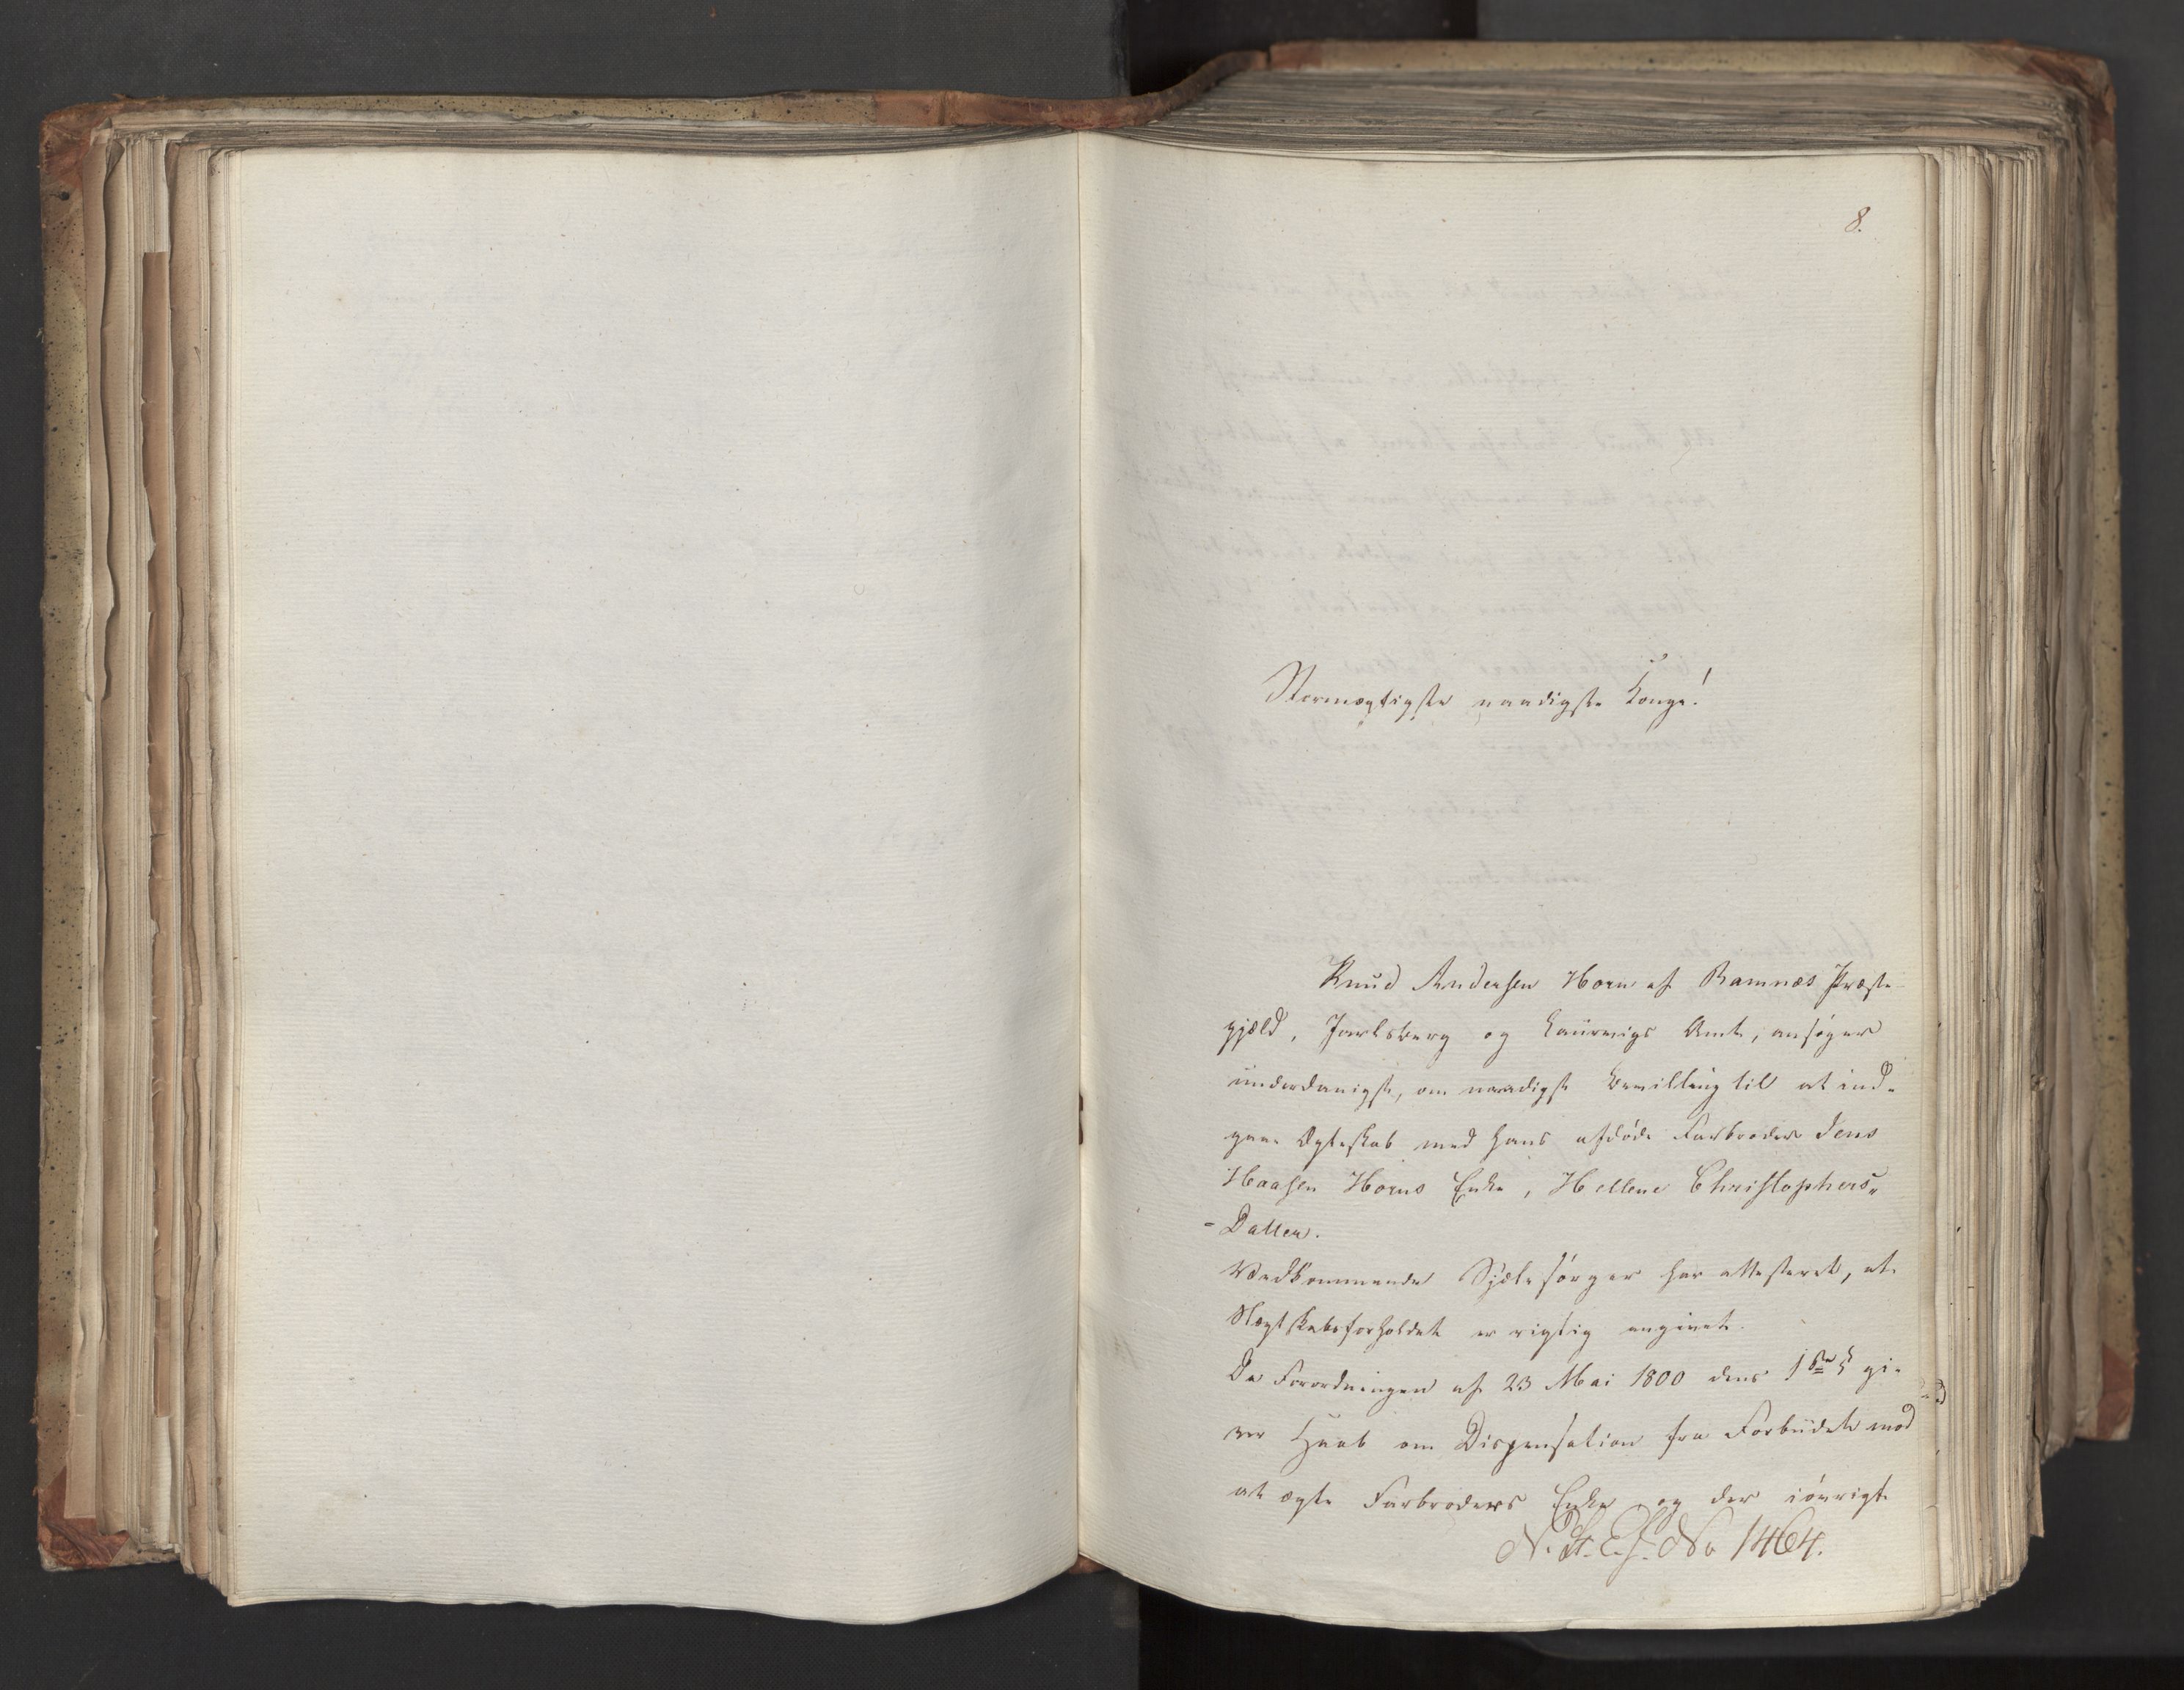 8.
Stormægtigste naadigste Konge!
Knud Andersen Horn af Ramnæs Præste
gjæld, Jarlsberg og Laurvigs Amt, ansøger
underdanigst, om naadigst Bevilling til at ind-
gaae Ægteskab med hans afdøde Farbroder Jens
Haasen Horns Enke, Hellene Christophers„
-Datter.
Vedkommende Sjælesørger har attesteret, at
Slægtskabsforholdet er rigtig angivet.
Da Forordningen af 23 Mai 1800 dens 1ste § gi-
ver Haab om Dispensation fra Forbudet mod
at ægte Farbroders Enke og der iøvrigt
N. St. E. J. No 1464.